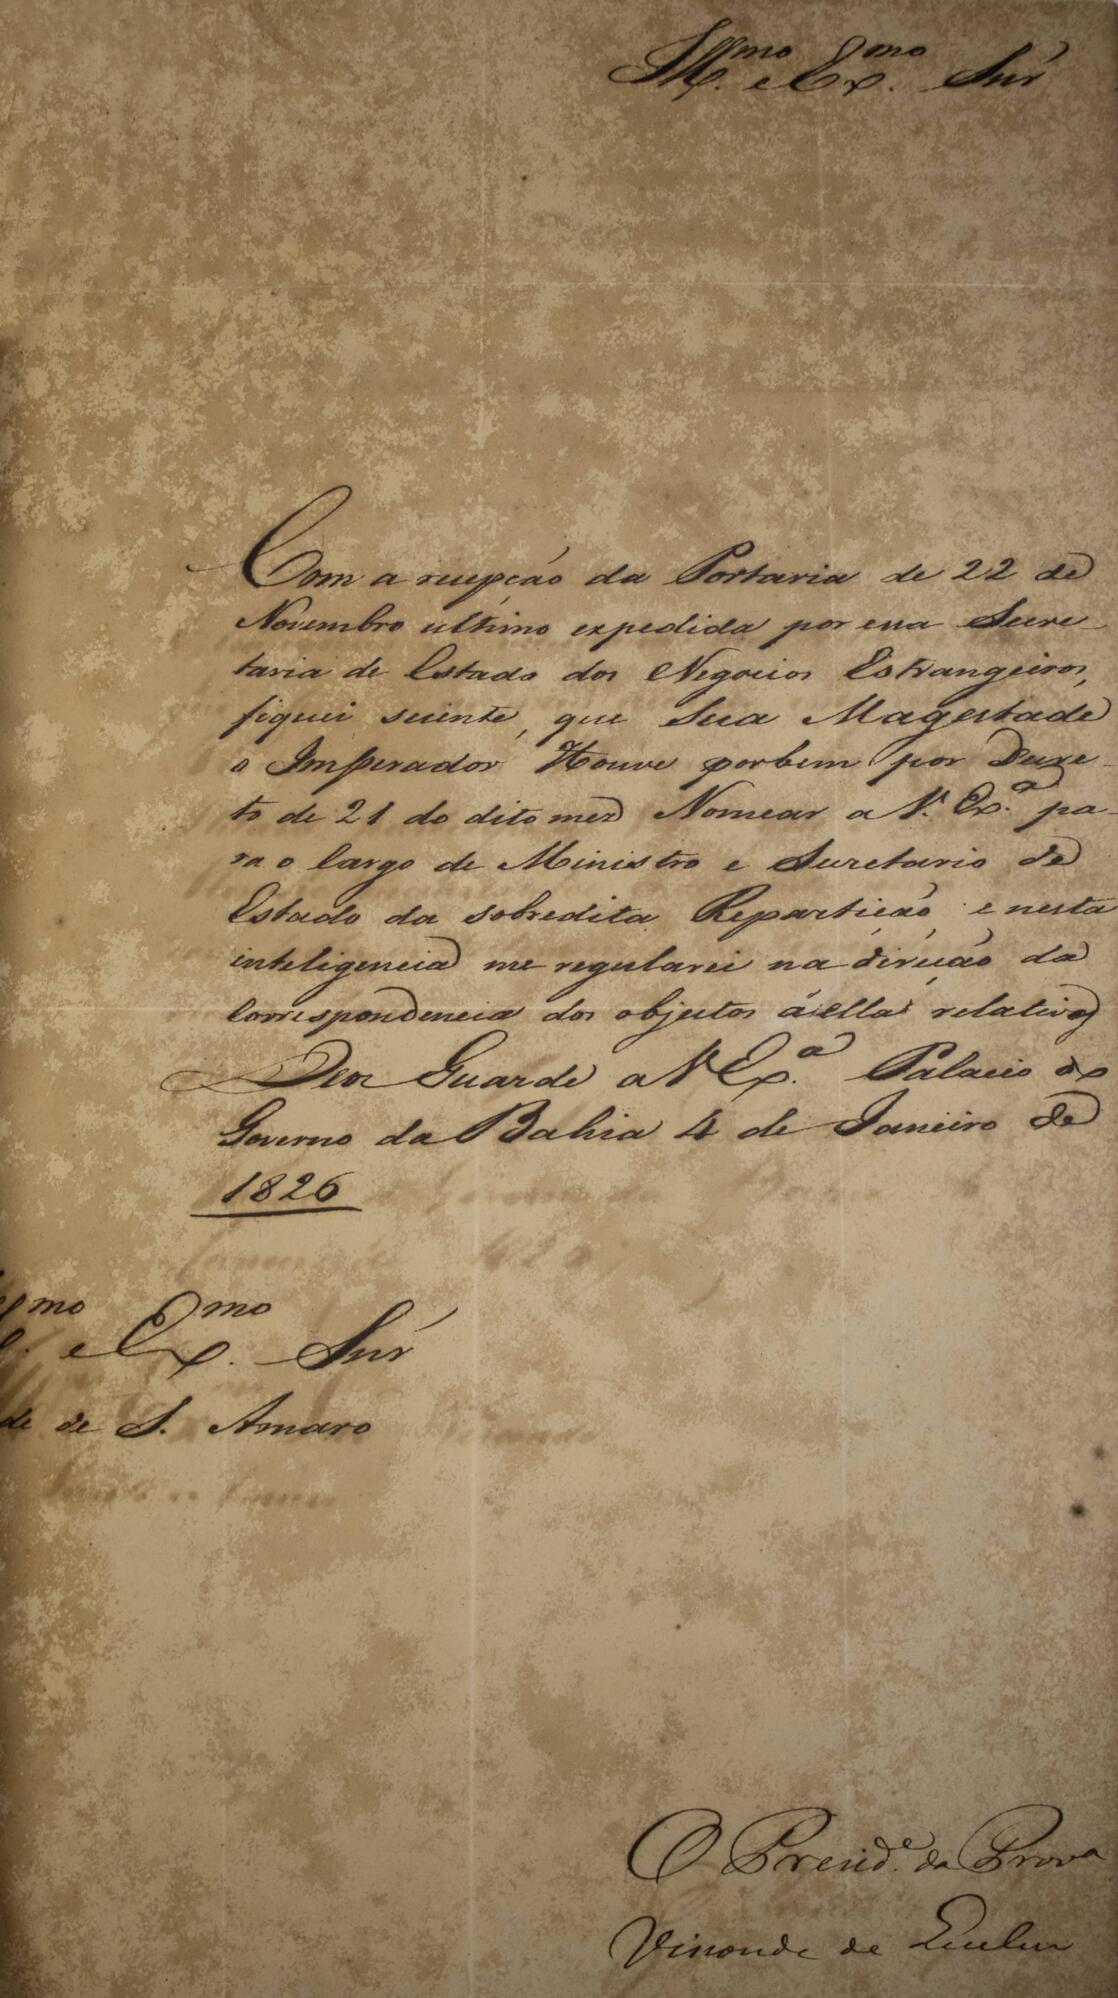 Ill.mo e Ex.mo Snr
Com a recepção da Portaria de 22 de
Novembro ultimo expedida por essa Secre-
taria de Estado dos Negocios Estrangeiros,
fiquei sciente, que Sua Magestade
o Imperador Houve por bem por Decre-
to de 21 do dito mez Nomear a V. Ex.a pa-
ra o Cargo de Ministro e Secretario de
Estado da sobredita Repartição e nesta
inteligencia me regularei na direcção da
Correspondencia dos objectos á ella relativos
Deos Guarde a V Ex.a Palacio do
Governo da Bahia 4 de Janeiro de
1826
mo e Ex.mo Snr
de de S. Amaro
O Presid.e da Prova
Visconde de